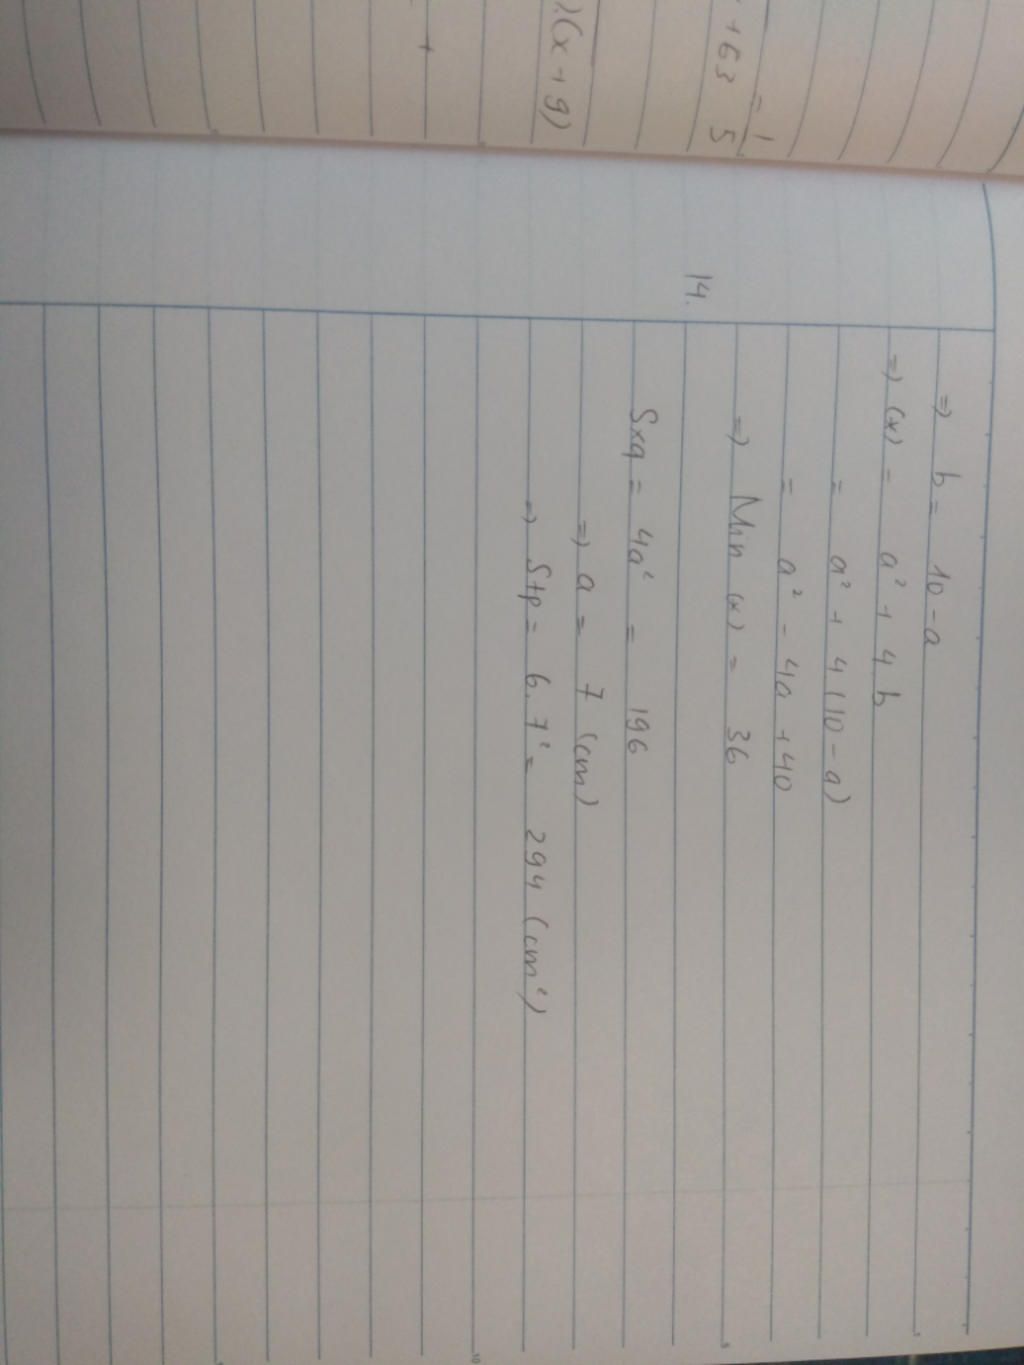 +63 = 1/5
(x+9)
+
=> b = 10 - a
=> (x) = a² + 4.b
= a² + 4(10 - a)
= a² - 4a + 40
=> Min (x) = 36
14.
Sxq = 4a² = 196
=> a = 7 (cm)
=> Stp = 6.7² = 294 (cm²)